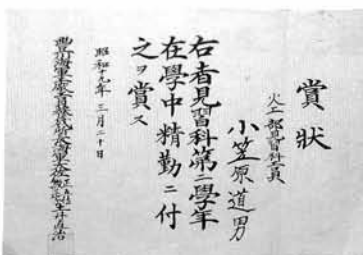 賞狀
火工部見習科工員
小笠原道男
右者見習科第二學年
在學中精勤ニ付
之ヲ賞ス
昭和十九年三月二十日
豐川海軍工廠